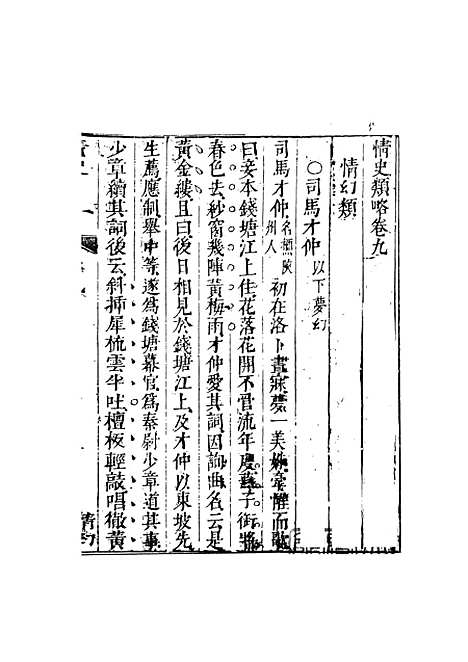 情史類略卷九
情幻類
○司馬才仲以下夢幻
司馬才仲名槱陝州人初在洛下晝寐夢一美姝搴帷而歌
曰妾本錢塘江上住花落花開不管流年度燕子銜將
春色去紗窗幾陣黃梅雨才仲愛其詞因詢曲名云是
黃金縷且曰後日相見於錢塘江上及才仲以東坡先
生薦應制舉中等遂爲錢塘幕官爲秦尉少章道其事
少章續其詞後云斜插犀梳雲半吐檀板輕敲唱徹黃
情幻